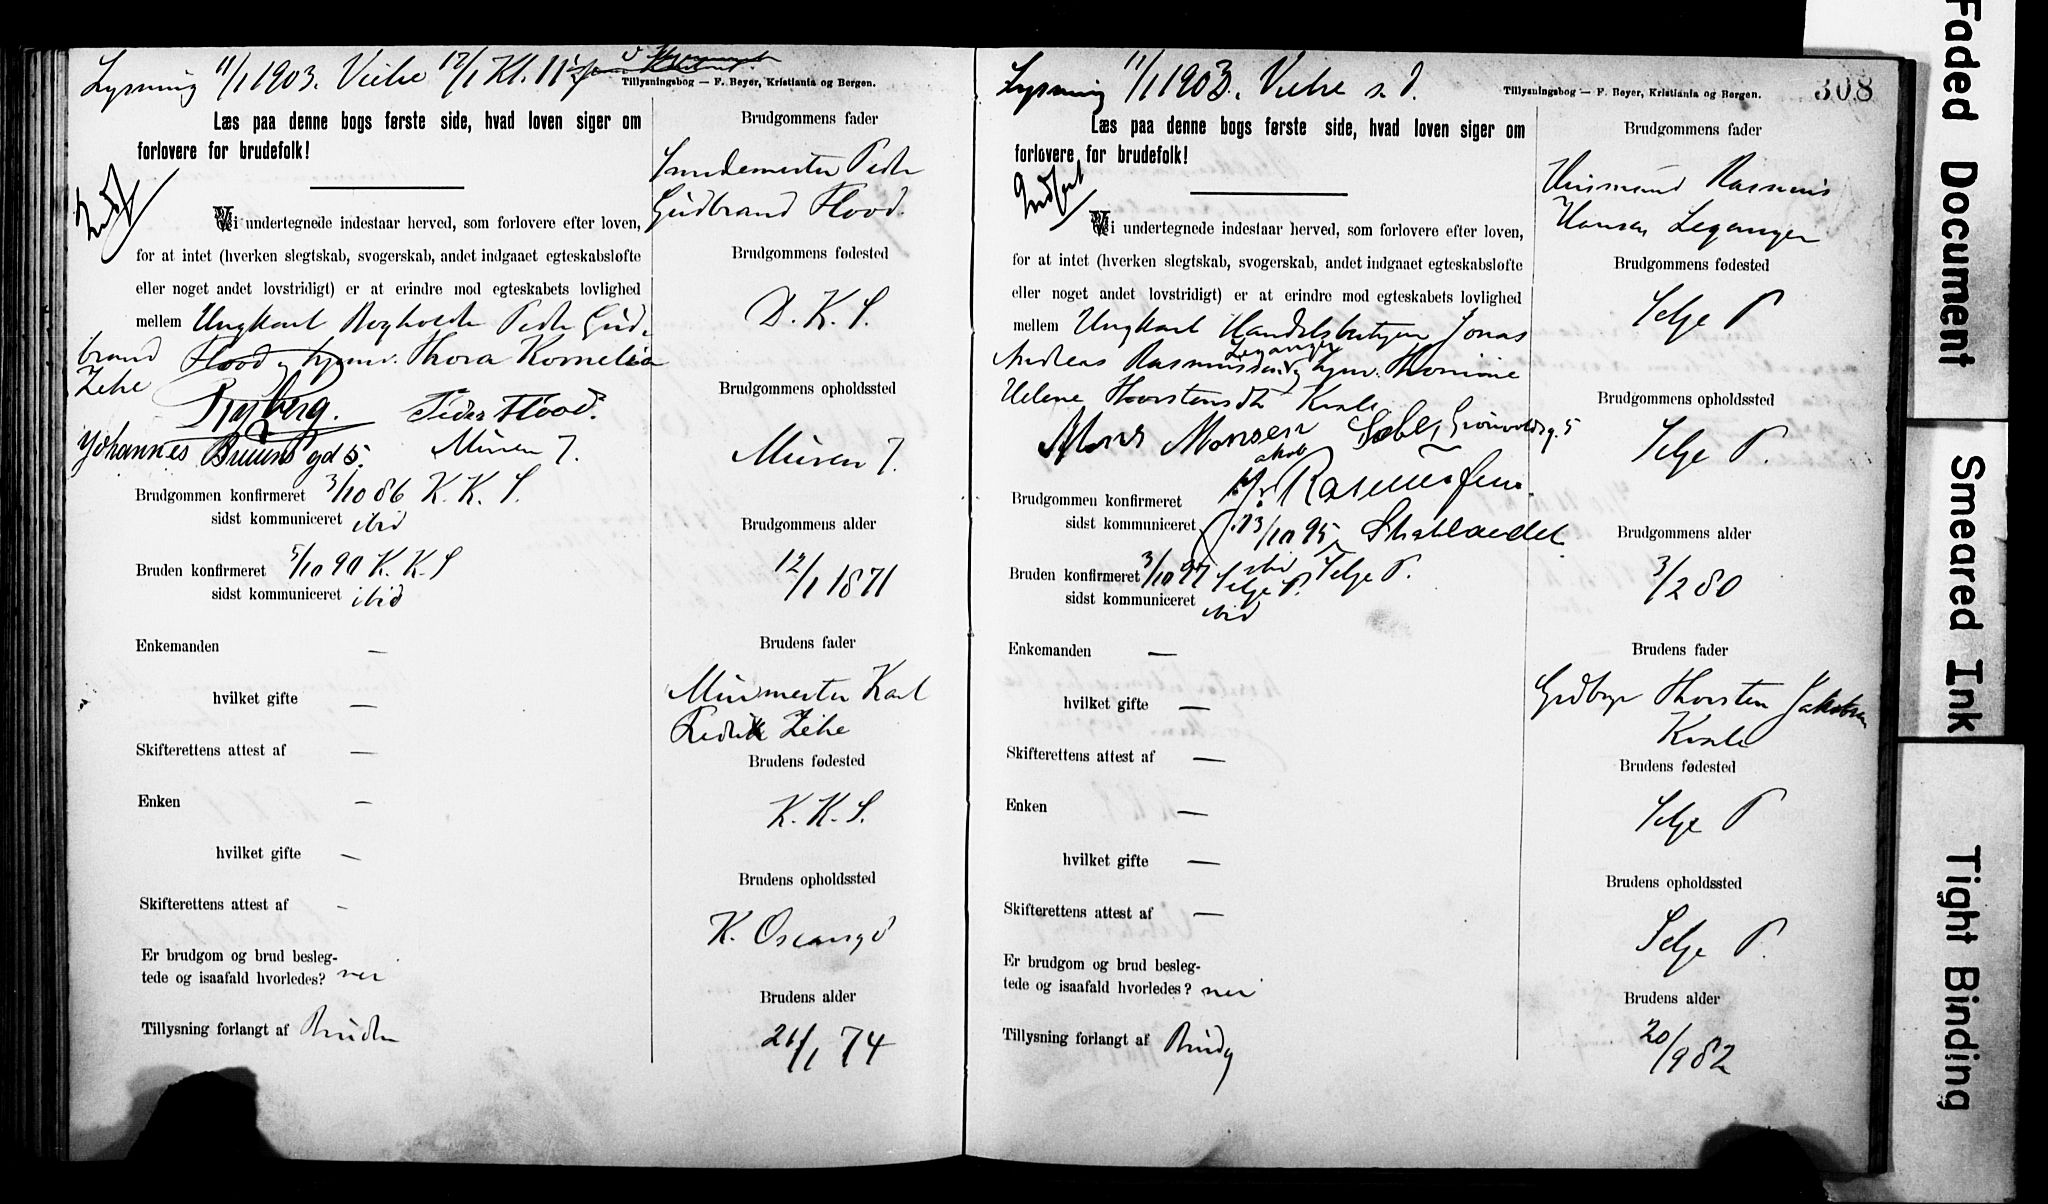 Lysning 11/1 1903. Vielse 12/1 Kl. 11
Tillysningsbog — F. Beyer, Kristiania og Bergen.
Læs paa denne bogs første side, hvad loven siger om
forlovere for brudefolk!
Indf
Vi undertegnede indestaar herved, som forlovere efter loven,
for at intet (hverken slegtskab, svogerskab, andet indgaaet egteskabsløfte
eller noget andet lovstridigt) er at erindre mod egteskabets lovlighed
mellem Ungkarl Bogholder Peder Gud-
brand Flood og pigen Thora Kornelia
Zehe
Peder Flood.
Johannes Bruuns gd 5. Muren 7.
Brudgommen konfirmeret 3/10 86 K. K. S.
sidst kommuniceret ibid
Bruden konfirmeret 5/10 90 K. K. S
sidst kommuniceret ibid
Enkemanden —
hvilket gifte —
Skifterettens attest af —
Enken —
hvilket gifte —
Skifterettens attest af —
Er brudgom og brud besleg-
tede og isaafald hvorledes? nei
Tillysning forlangt af Bruden
Brudgommens fader
Smedemester Peder
Gudbrand Flood.
Brudgommens fødested
D. K. S.
Brudgommens opholdssted
Muren 7.
Brudgommens alder
12/1 1871
Brudens fader
Murmester Karl
Fredrik Zehe
Brudens fødested
K. K. S.
Brudens opholdssted
K. Oscarsgd
Brudens alder
26/1 74
Lysning 11/1 1903. Vielse s. d.
Tillysningsbog — F. Beyer, Kristiania og Bergen.
308
Læs paa denne bogs første side, hvad loven siger om
forlovere for brudefolk!
Indført
Vi undertegnede indestaar herved, som forlovere efter loven,
for at intet (hverken slegtskab, svogerskab, andet indgaaet egteskabsløfte
eller noget andet lovstridigt) er at erindre mod egteskabets lovlighed
mellem Ungkarl Handelsbetjen Jonas
Leganger
Andreas Rasmussen og pigen Thomine
Helene Thorstensdtr Kvale
Mons Monsen Sæbø, Grønvoldsg. 5
Jakob Rasmussen.
Brudgommen konfirmeret
sidst kommuniceret 13/10 95 Selje P.
ibid
Bruden konfirmeret 3/10 97 Selje P.
sidst kommuniceret ibid
Enkemanden —
hvilket gifte —
Skifterettens attest af —
Enken —
hvilket gifte —
Skifterettens attest af —
Er brudgom og brud besleg-
tede og isaafald hvorledes? nei
Tillysning forlangt af Brudg
Brudgommens fader
Husmand Rasmus
Hansen Leganger
Brudgommens fødested
Selje P
Brudgommens opholdssted
Selje P.
Brudgommens alder
3/2 80
Brudens fader
Grdbrgr Thorsten Jakobsen
Kvale
Brudens fødested
Selje P
Brudens opholdssted
Selje P.
Brudens alder
20/9 82
Faded Document
Smeared Ink
Tight Binding